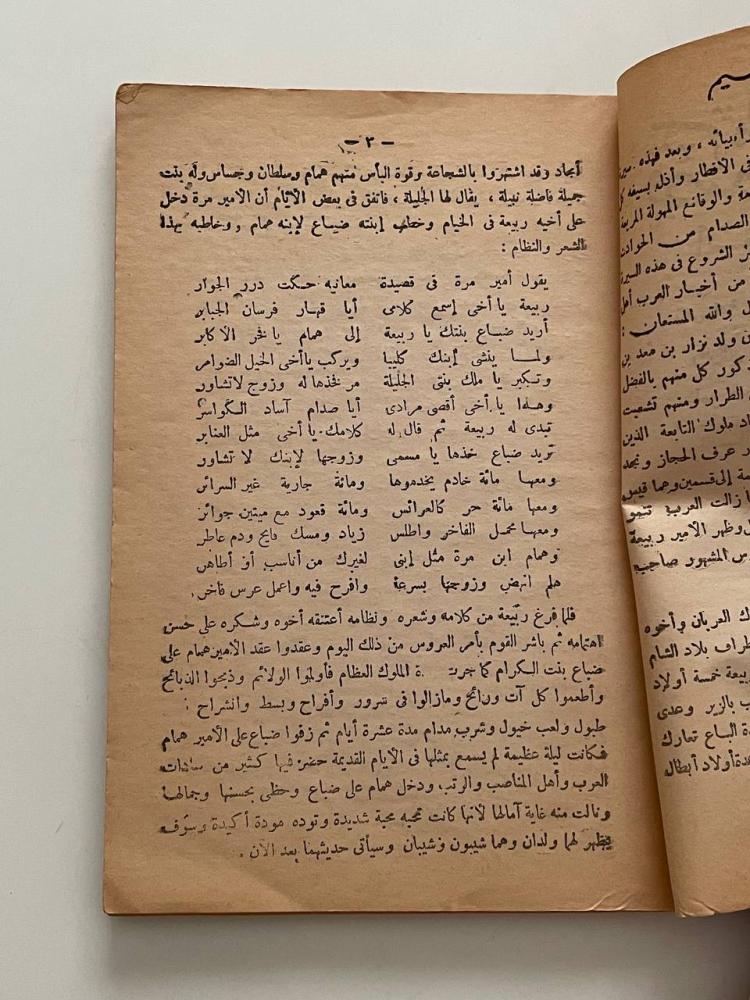 — ٣ —
أبجاد وقد اشتهروا بالشجاعة وقوة البأس منهم همام وسلطان وجساس وله بنت
جميلة فاضلة نبيلة ، يقال لها الجليلة ، فاتفق في بعض الأيام أن الأمير مرة دخل
على أخيه ربيعة في الخيام وخطب إبنته ضباع لإبنه همام ، وخاطبه بهذا
الشعر والنظام :
يقول أمير مرة في قصيدة معانيه حكت درر الجوار
ربيعة يا أخى إسمع كلامى أيا قهار فرسان الجبابر
أريد ضباع بنتك يا ربيعة إلى همام يا فخر الأكابر
ولما ينشى إبنك كليبا ويركب يا أخى الخيل الضوامر
وتكبر يا ملك بنتى الجليلة مر فخذها له وزوج لا تشاور
وهذا يا أخى أقصى مرادى أيا صدام آساد الكواسر
تبدى له ربيعة ثم قال له كلامك يا أخى مثل العنابر
تريد ضباع خذها يا مسمى وزوجها لإبنك لا تشاور
ومعها مائة خادم يخدموها ومائة جارية غير السرائر
ومعها مائة حر كالعرائس ومائة قعود مع ميتين جوائز
ومعها محمل الفاخر واطلس زياد ومسك فايح ودم عاطر
وهمام ابن مرة مثل إبنى لغيرك من أناسب أو أظاهر
هلم انهض وزوجها بسرعة وافرح فيه واعمل عرس فاخر
فلما فرغ ربيعة من كلامه وشعره ونظامه أعتنقه أخوه وشكره على حسن
اهتمامه ثم باشر القوم بأمر العروس من ذلك اليوم وعقدوا عقد الأمير همام على
ضباع بنت الكرام كما جرت الملوك العظام فأولموا الولائم وذبحوا الذبائح
وأطعموا كل آت ورائح ومازالوا في سرور وأفراح وبسط وانشراح :
طبول ولعب خيول وشرب مدام مدة عشرة أيام ثم زفوا ضباع على الأمير همام
فكانت ليلة عظيمة لم يسمع بمثلها في الأيام القديمة حضر فيها كثير من سادات
العرب وأهل المناصب والرتب ودخل همام على ضباع وحظى بحسنها وجمالها
ونالت منه غاية آمالها لأنها كانت تحبه محبة شديدة وتوده مودة أكيدة وسوف
يظهر لهما ولدان وهما شيبون وشيبان وسيأتى حديثهما بعد الآن .